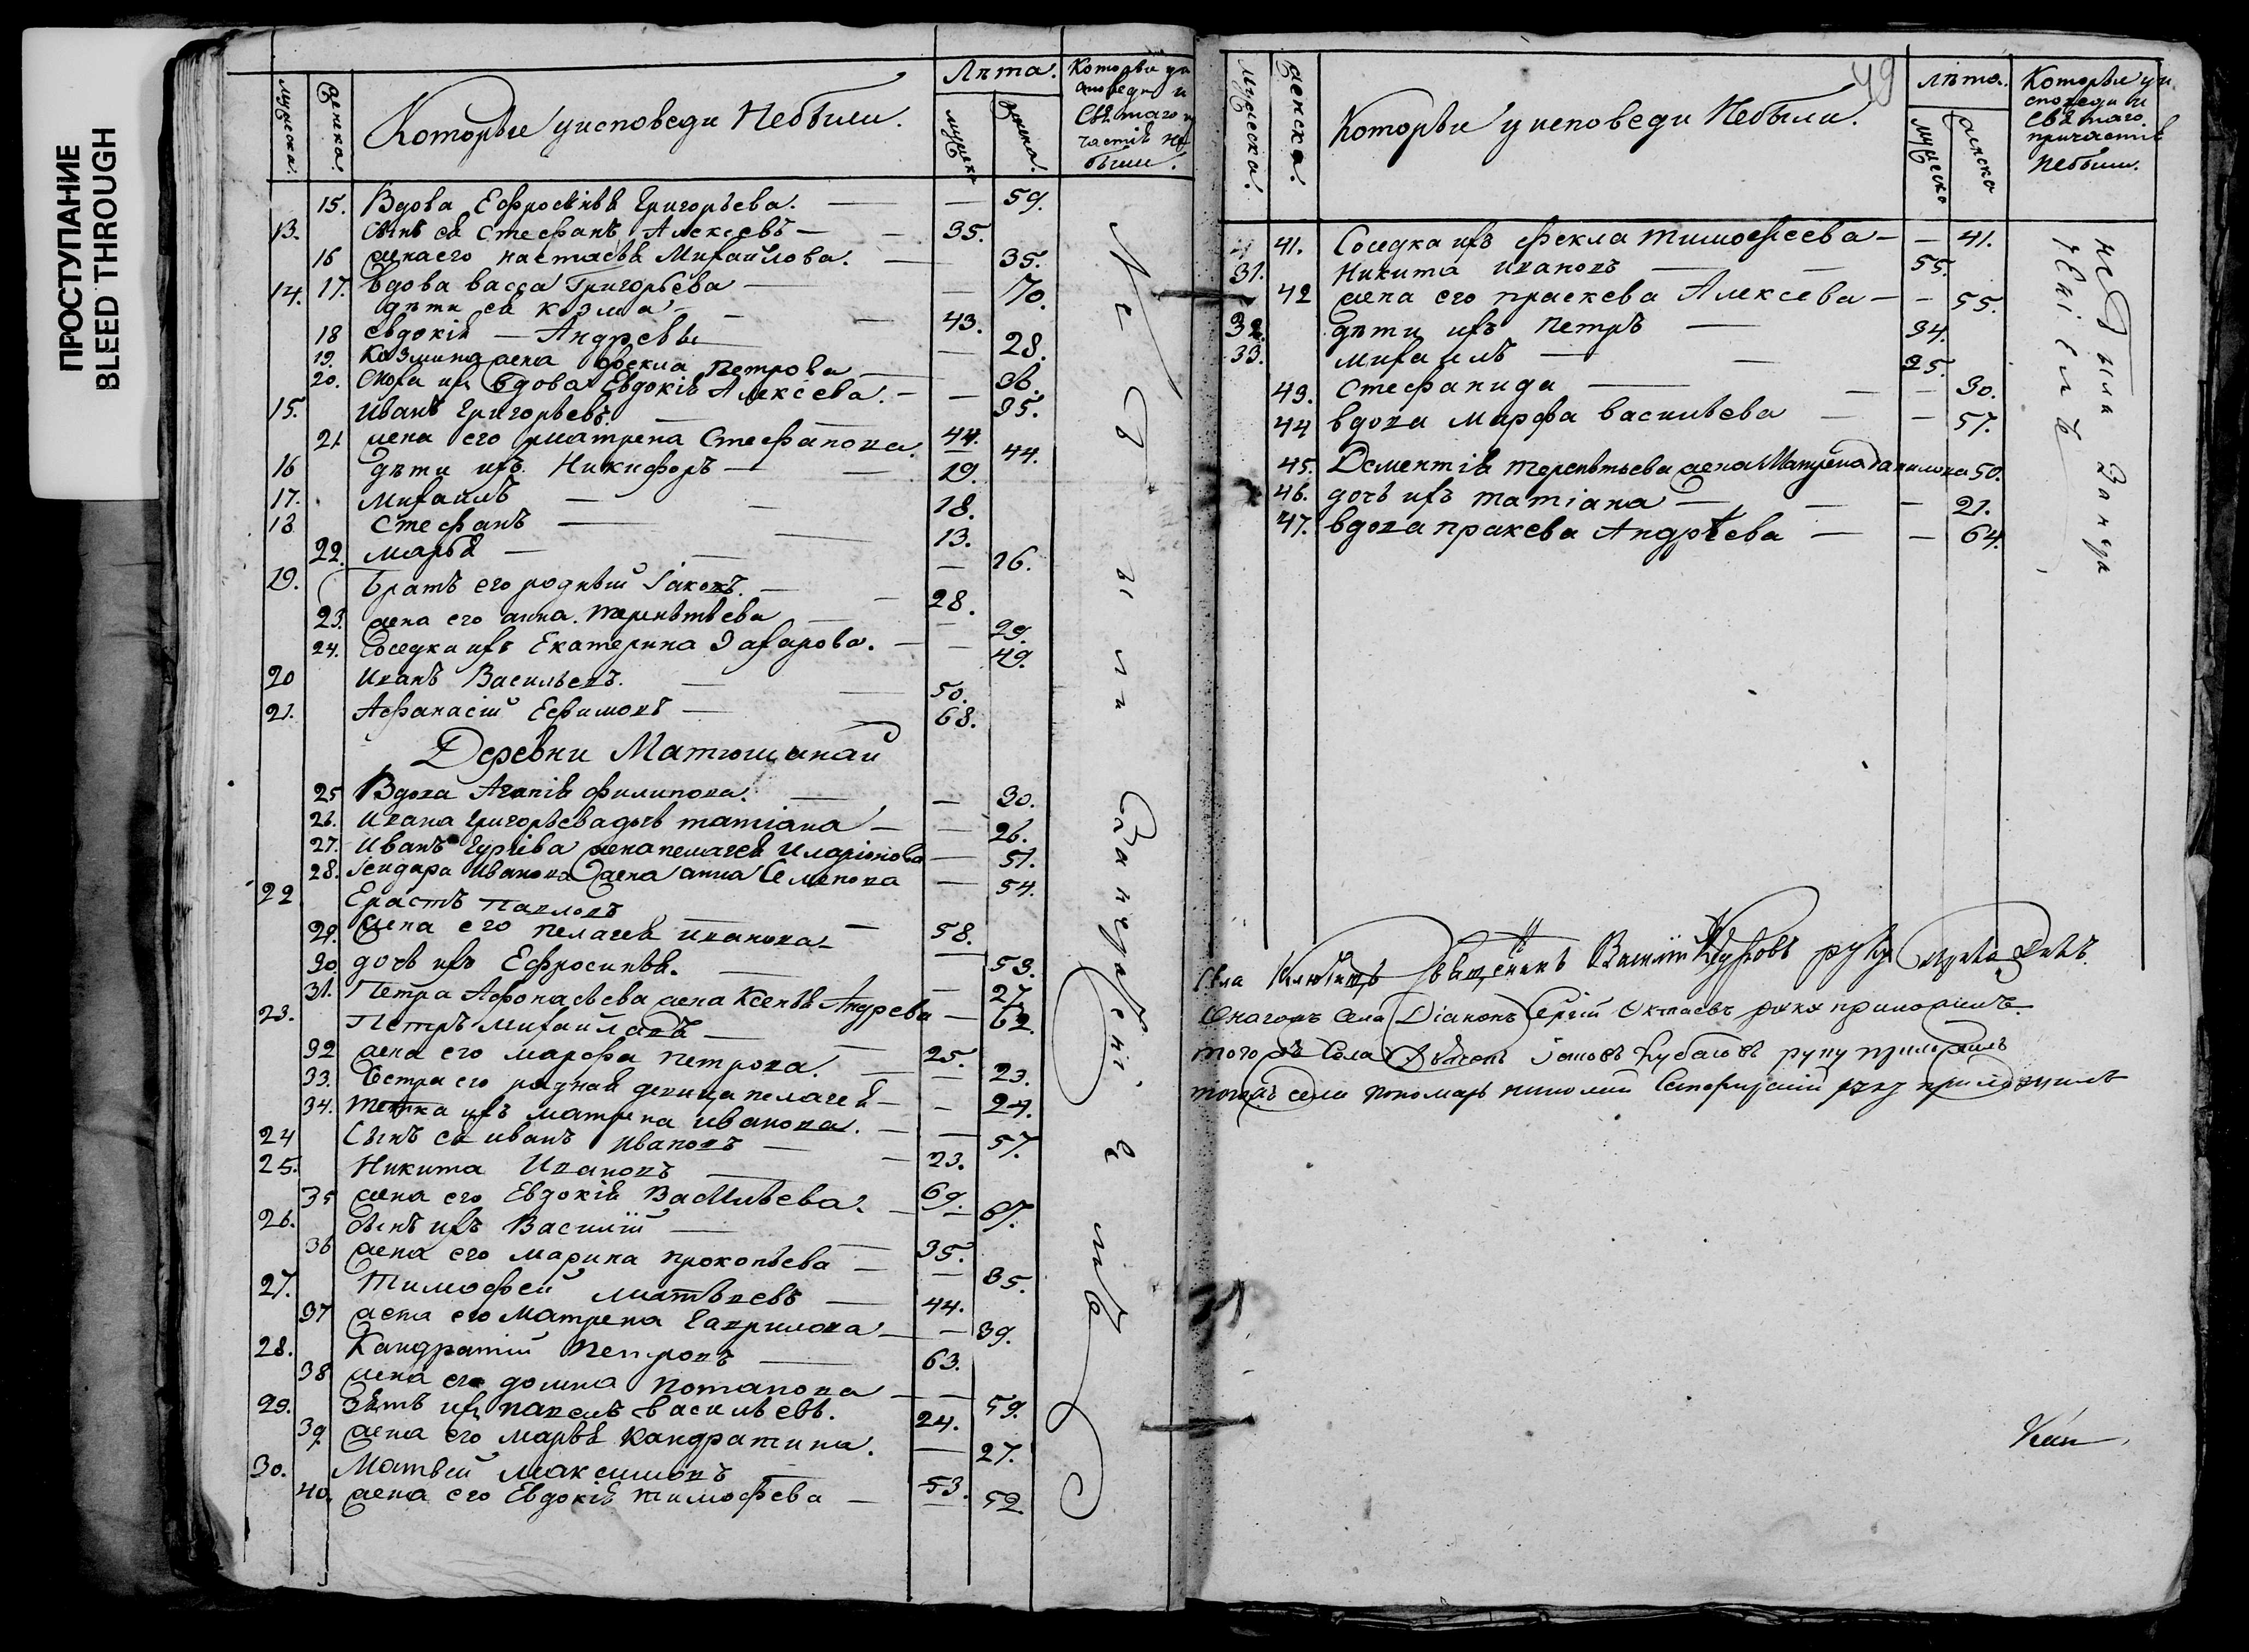 ПРОСТУПАНИЕ
BLEED THROUGH
мужеска. женска. Которые уисповеди Небыли. Лѣта. мужеска женска. Которые уи
споведи и
Свѧтаго
частіѧ не
были.
15. Вдова Ефросинья Григорьева. — — 59.
13. Сынъ еѧ Стефанъ Алексеевъ — 35.
16 жена его настасья Михайлова. — 35.
14. 17. Вдова васса Григорьева — — 70.
дѣти еѧ козма — 43.
18 евдокіѧ — Андреевы — 28.
19. Козмина жена фекла петрова — 36.
20. Сноха ихъ вдова Евдокіѧ Алексеева. — — 35.
15. Иванъ Григорьевъ. — 44.
21 жена его матрена Стефанова. — 44.
16 дѣти ихъ Никифоръ — 19.
17. Михаилъ — 18.
18 Стефанъ — 13.
22. марьѧ — — 26.
19. братъ его родный Іаковъ. — 28.
23. жена его анна терентьева — — 29.
24. Соседка ихъ Екатерина Захарова. — — 49.
20 Иванъ Васильевъ. — 50.
21. Афанасій Ефимовъ — 68.
Деревни Матюшинай
25 Вдова Агапіѧ филипова. — — 30.
26. Ивана Григорьева дочь татіана — — 26.
27. Иванъ жена пелагеѧ Иларіонова — 51.
28. Иванова жена анна Семенова — 54.
22 Ерастъ павловъ — 58.
29. жена его пелагеѧ иванова — — 53.
30. дочь ихъ Ефросинья. — — 27.
31. Петра Афонасьева жена Ксеньѧ Андреева — 62.
23. Петръ Михайловъ — 25.
32 жена его марфа петрова. — — 23.
33. Сестра его родная девица пелагеѧ — — 24.
34. тетка ихъ матрена иванова. — — 57.
24 Сынъ еѧ иванъ ивановъ — 23.
25. Никита Ивановъ — 69.
35 жена его Евдокіѧ Васильева. — — 67.
26. Сынъ ихъ Василій — 35.
36 жена его марина прокопьева — — 35.
27. Тимофей матвеевъ — 44.
37 жена его Матрена Гаврилова — — 39.
28. Кандратій Петровъ — 63.
38 жена его домна потапова — — 59.
29. Зѧть ихъ павелъ васильевъ. 24.
39. жена его марьѧ кандратина. — 27.
30. Матвей максимовъ — 53.
40. жена его Евдокіѧ тимофева — — 52
Не были
49
мужеска. женска. Которыи уисповеди Небыли. лѣта. мужеска женска Которые уи
споведи и
Свѧтаго
причастіѧ
Небыли.
41. Соседка ихъ фекла тимофеева — — 41.
31. Никита ивановъ — 55.
42 жена его праскева Алексева — — 55.
32. дѣти ихъ петръ — 34.
33. михаилъ — 25.
43. Стефанида — — 30.
44 вдова марфа васильева — — 57.
45. Дементіѧ терентьева жена Матрена данилова 50.
46. дочь ихъ татіана — — 21.
47. вдова пракева Андрѣева — — 64.
Села Свѧщенникъ Василій руку
Онагожъ Села Діаконъ Сергій руку приложилъ
тогожъ Села Іаковъ руку приложилъ
тогожъ села пономарь николай руку приложилъ